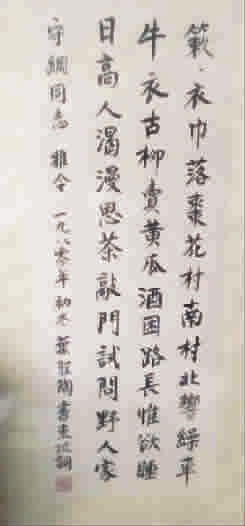 簌、衣巾落棗花村南村北響繰車
牛衣古柳賣黃瓜酒困路長惟欲睡
日高人渴漫思茶敲門試問野人家
守綱同志雅令 一九八零年初冬 葉聖陶書東坡詞